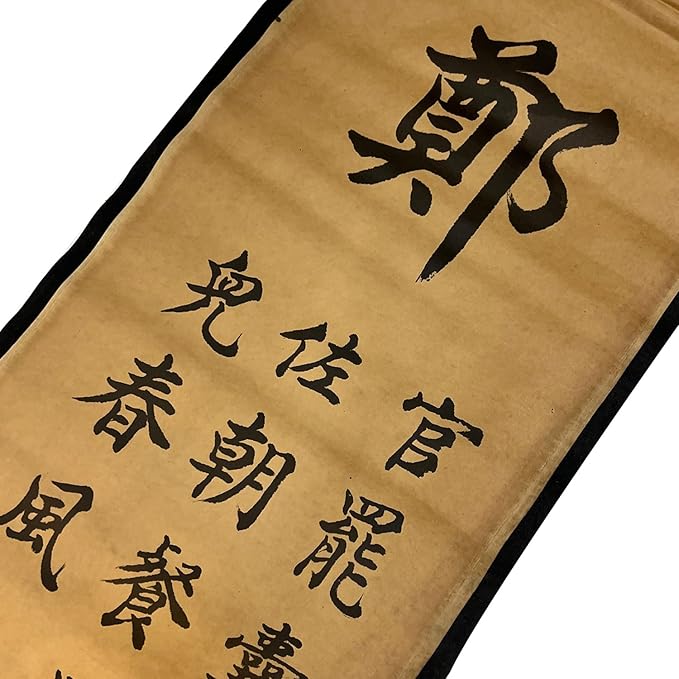 鄭
官罷囊
佐朝餐
兒春風